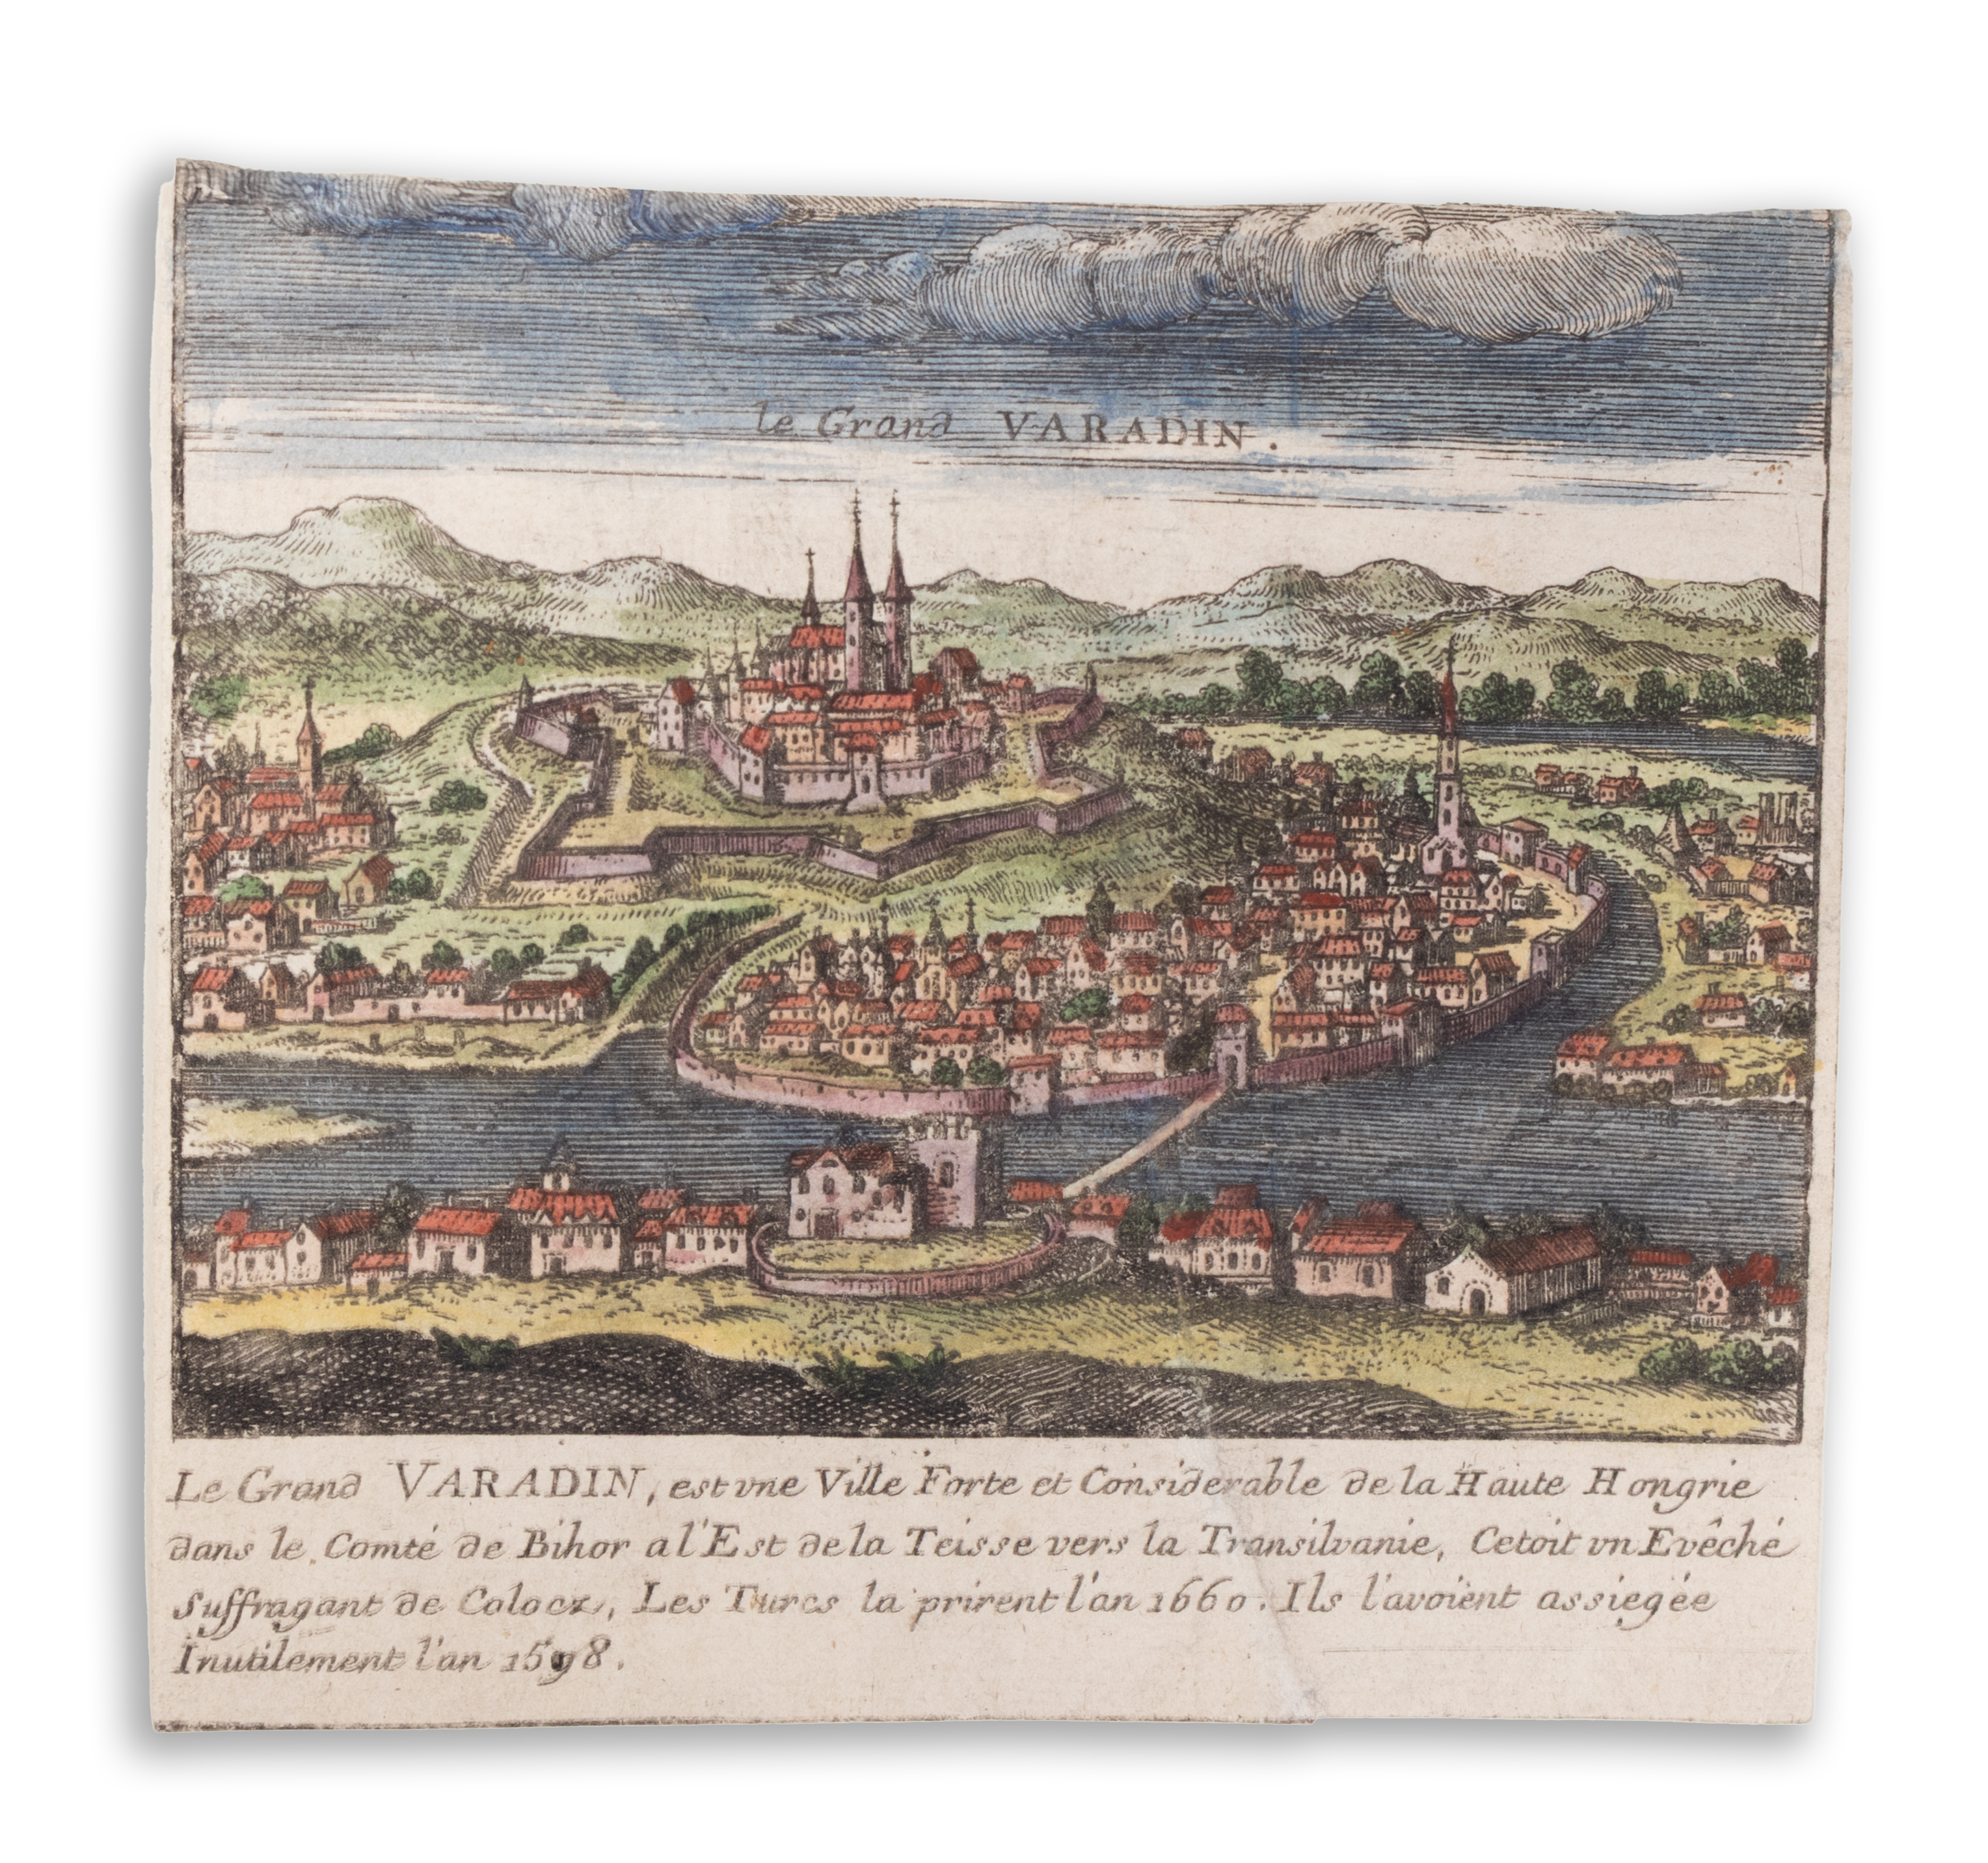 le Grand VARADIN.
Le Grand VARADIN, est vne Ville Forte et Considerable de la Haute Hongrie
dans le Comté de Bihor a l'Est de la Teisse vers la Transilvanie, Cetoit vn Evêché
Suffragant de Colocz, Les Turcs la prirent l'an 1660. Ils l'avoient assiegée
Inutilement l'an 1598.